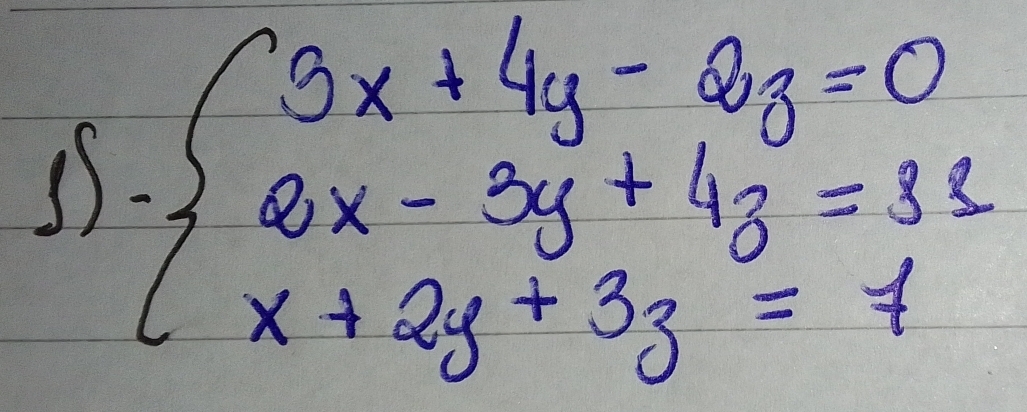 1) - 3x + 4y - 2z = 0
2x - 3y + 4z = 11
x + 2y + 3z = 7